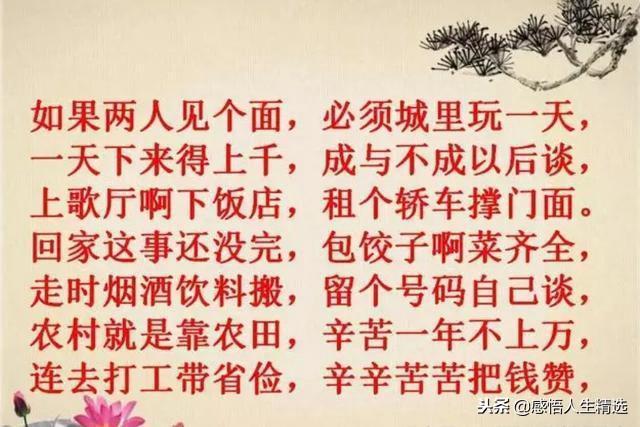 如果两人见个面，必须城里玩一天，
一天下来得上千，成与不成以后谈，
上歌厅啊下饭店，租个轿车撑门面。
回家这事还没完，包饺子啊菜齐全，
走时烟酒饮料搬，留个号码自己谈，
农村就是靠农田，辛苦一年不上万，
连去打工带省俭，辛辛苦苦把钱赞，
头条@感悟人生精选